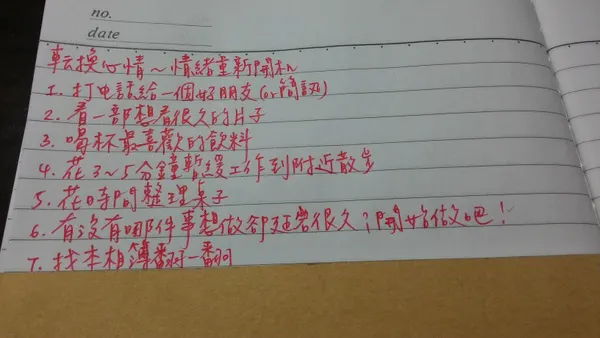 no.
date
轉換心情~情緒重新開机
1. 打电話給一個好朋友(or簡訊)
2. 看一部想看很久的片子
3. 喝杯最喜歡的飲料
4. 花3~5分鐘暫緩工作到附近散步
5. 花時間整理桌子
6. 有沒有哪件事想做卻延宕很久;開始做吧!
7. 找本相簿翻一翻